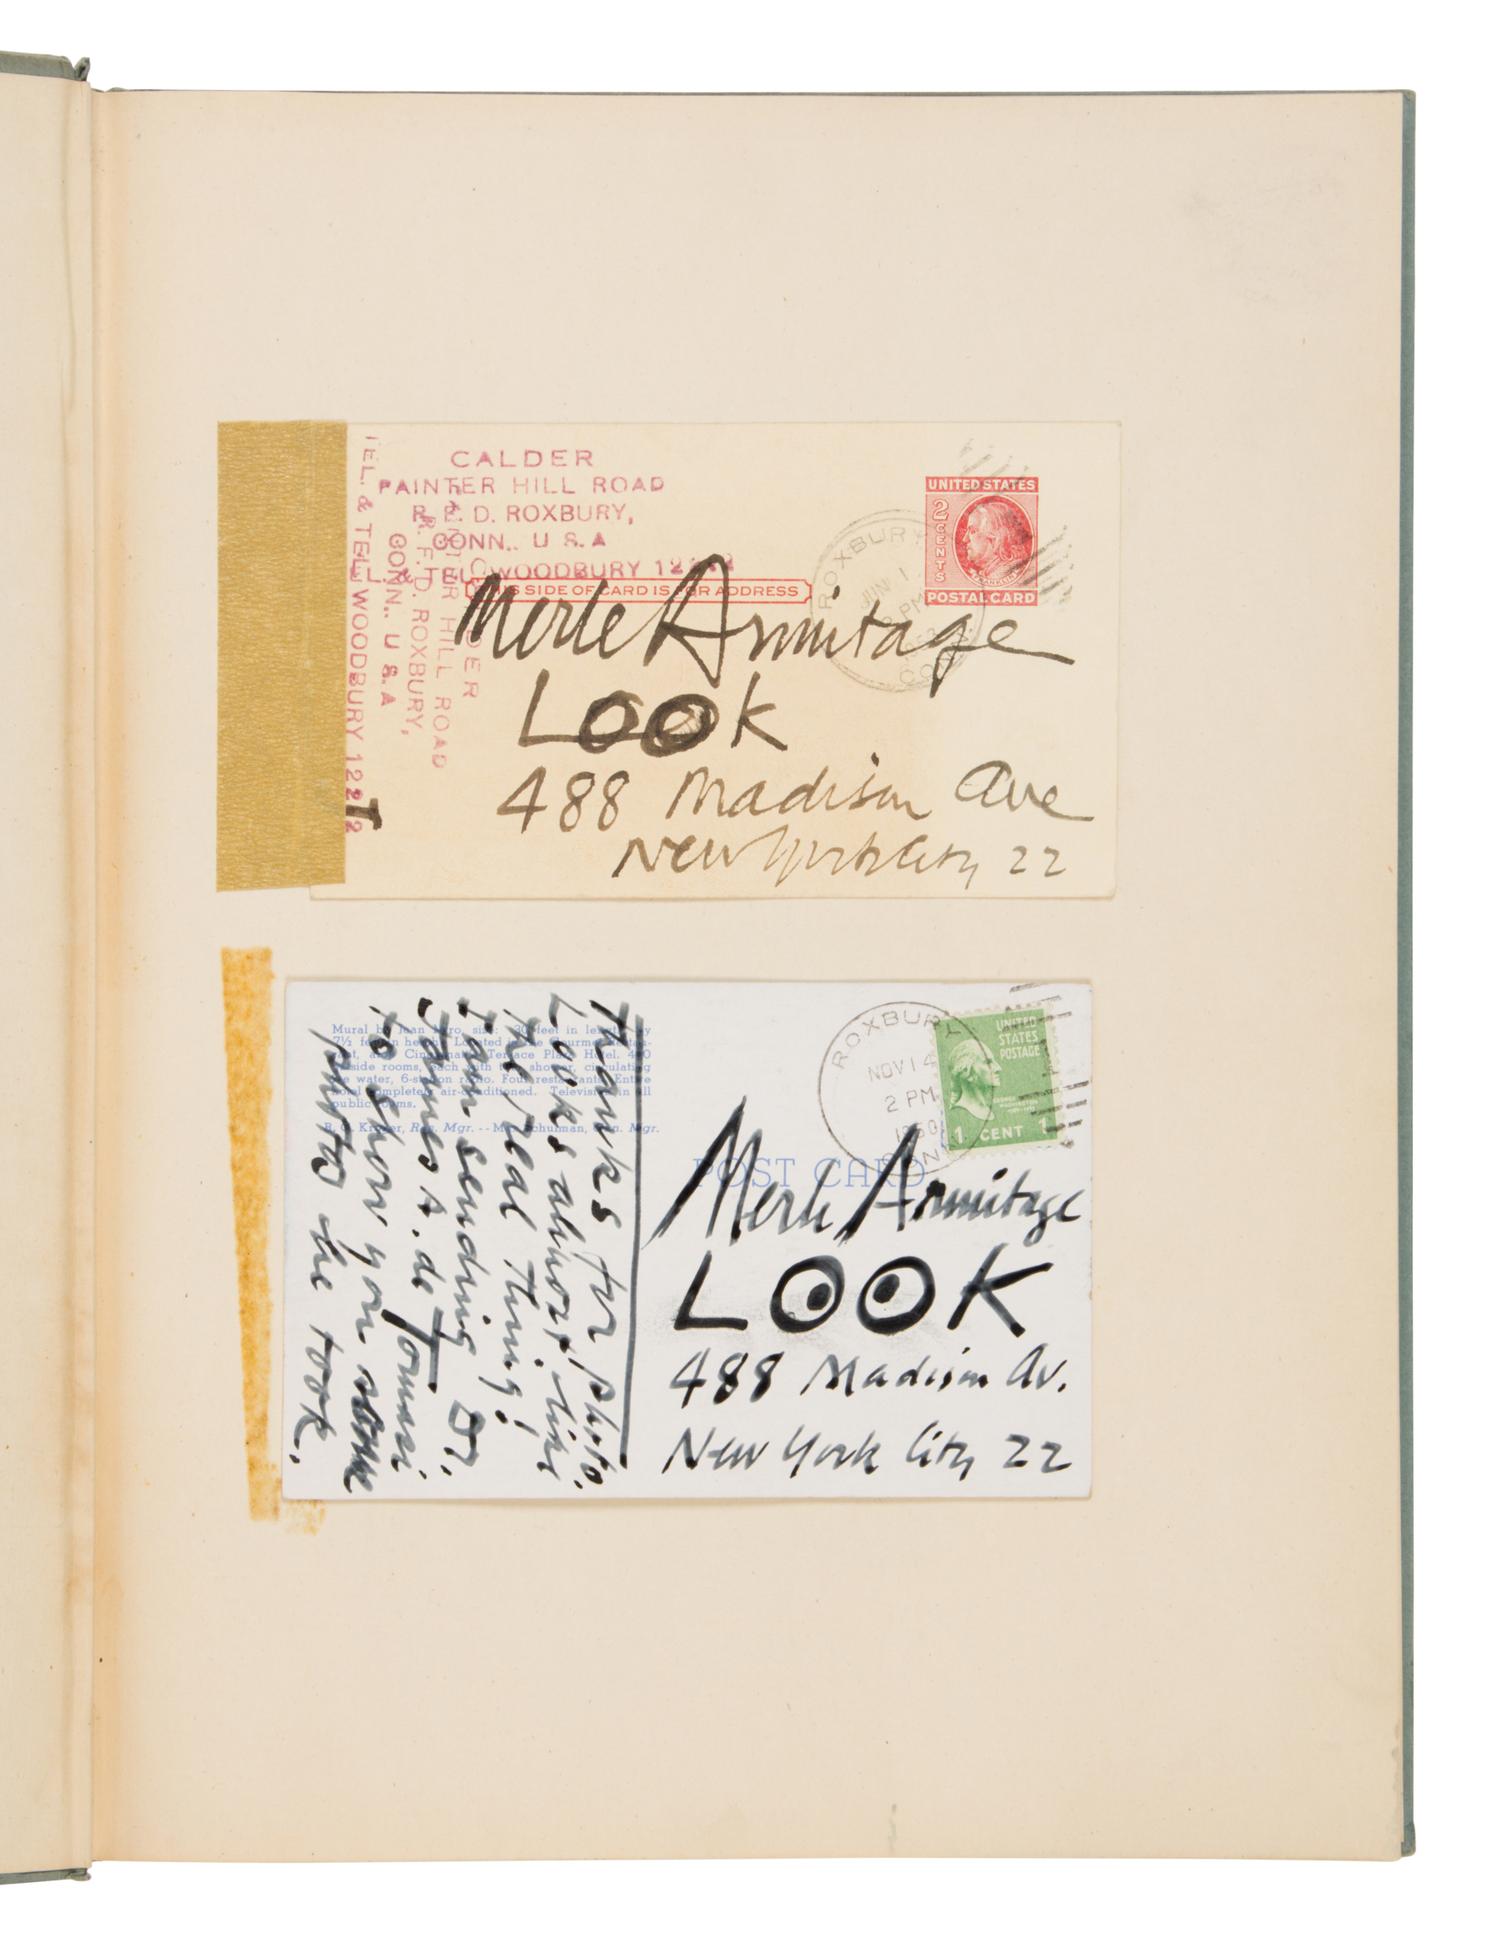 CALDER
PAINTER HILL ROAD
R. F. D. ROXBURY,
CONN., U S. A
TEL. & TEL. WOODBURY 1222
CALDER
PAINTER HILL ROAD
R. F. D. ROXBURY,
CONN., U S. A
TEL. & TEL. WOODBURY 122 2
THIS SIDE OF CARD IS FOR ADDRESS
ROXBURY
JUN 1
PM
CONN
UNITED STATES
2 CENTS
FRANKLIN
POSTAL CARD
Merle Armitage
LOOK
488 Madison Ave
New York City 22
Mural by Joan Miro, size: 30 feet in length by
7½ feet in height. Located in the Gourmet Restau-
rant, atop Cincinnati's Terrace Plaza Hotel. 400
outside rooms, each with tub, shower, circulating
ice water, 6-station radio. Four restaurants. Entire
hotel completely air-conditioned. Television in all
public rooms.
Res. Mgr. -- M. Schulman, Gen. Mgr.
Thanks for photo.
Looks almost like
the real thing!
I am sending Dr.
James A. de Tomasi
to show you some
photos he took.
POST CARD
ROXBURY
NOV 14
2 PM
1950
CONN
UNITED
STATES
POSTAGE
1 CENT 1
Merle Armitage
LOOK
488 Madison Av.
New York City 22